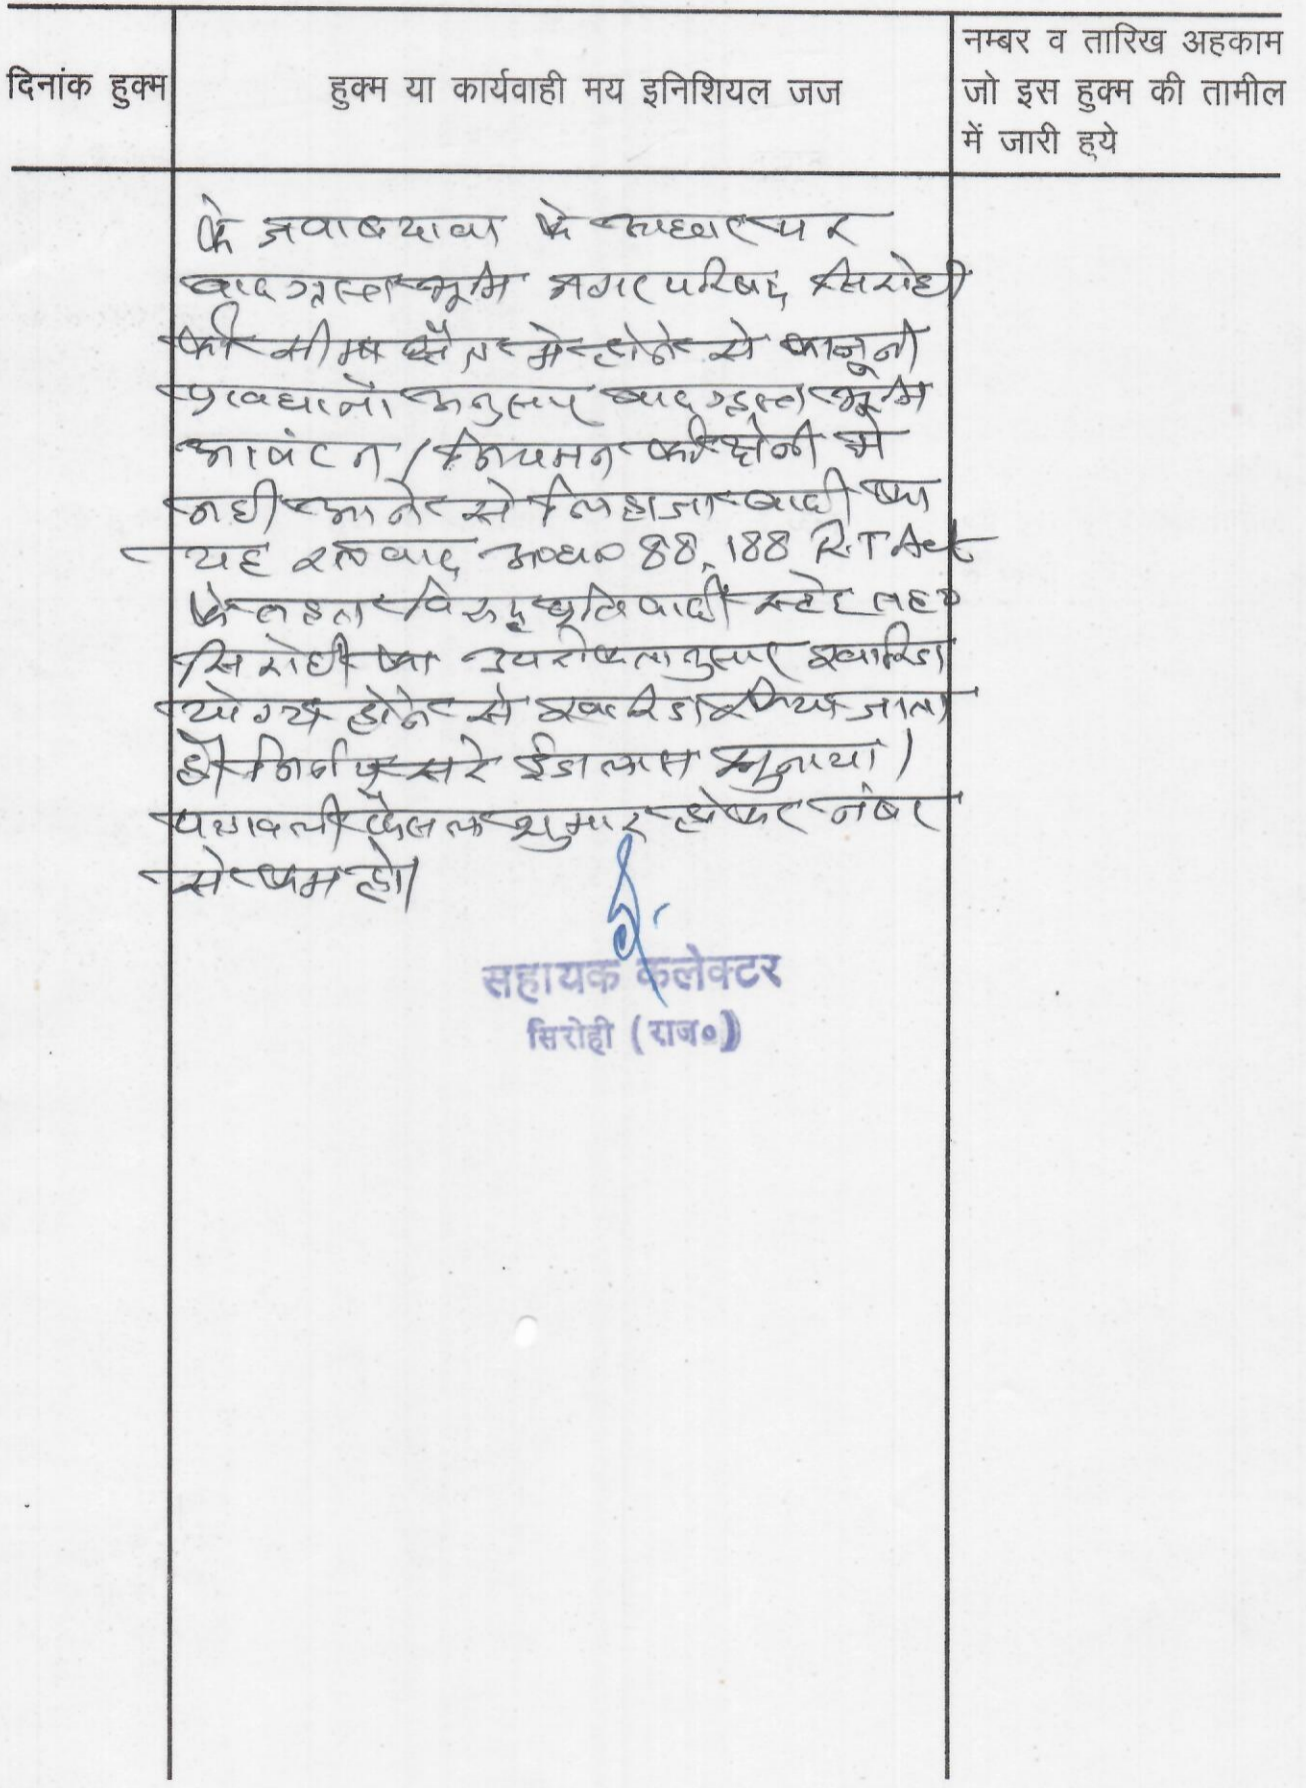 दिनांक हुक्म
हुक्म या कार्यवाही मय इनिशियल जज
नम्बर व तारिख अहकाम
जो इस हुक्म की तामील
में जारी हुये
के जवाब दावा के आधार पर
वादग्रस्त भूमि नगर परिषद सिरोही
की सीमा क्षेत्र मे होने से कानूनी
प्रावधानो अनुसार वादग्रस्त भूमि
आवंटन / नियमन की श्रेणी मे
नही आने से लिहाजा वादी का
यह वाद अ०धा० 88, 188 R.T Act
के तहत विरुद्ध प्रतिवादी स्टेट तह०
सिरोही का उपरोक्तानुसार खारिज
योग्य होने से खारिज किया जाता
है। निर्णय सरे ईजलास सुनाया।
पत्रावली फैसल शुमार होकर नंबर
से कम हो।
सहायक कलेक्टर
सिरोही (राज०)